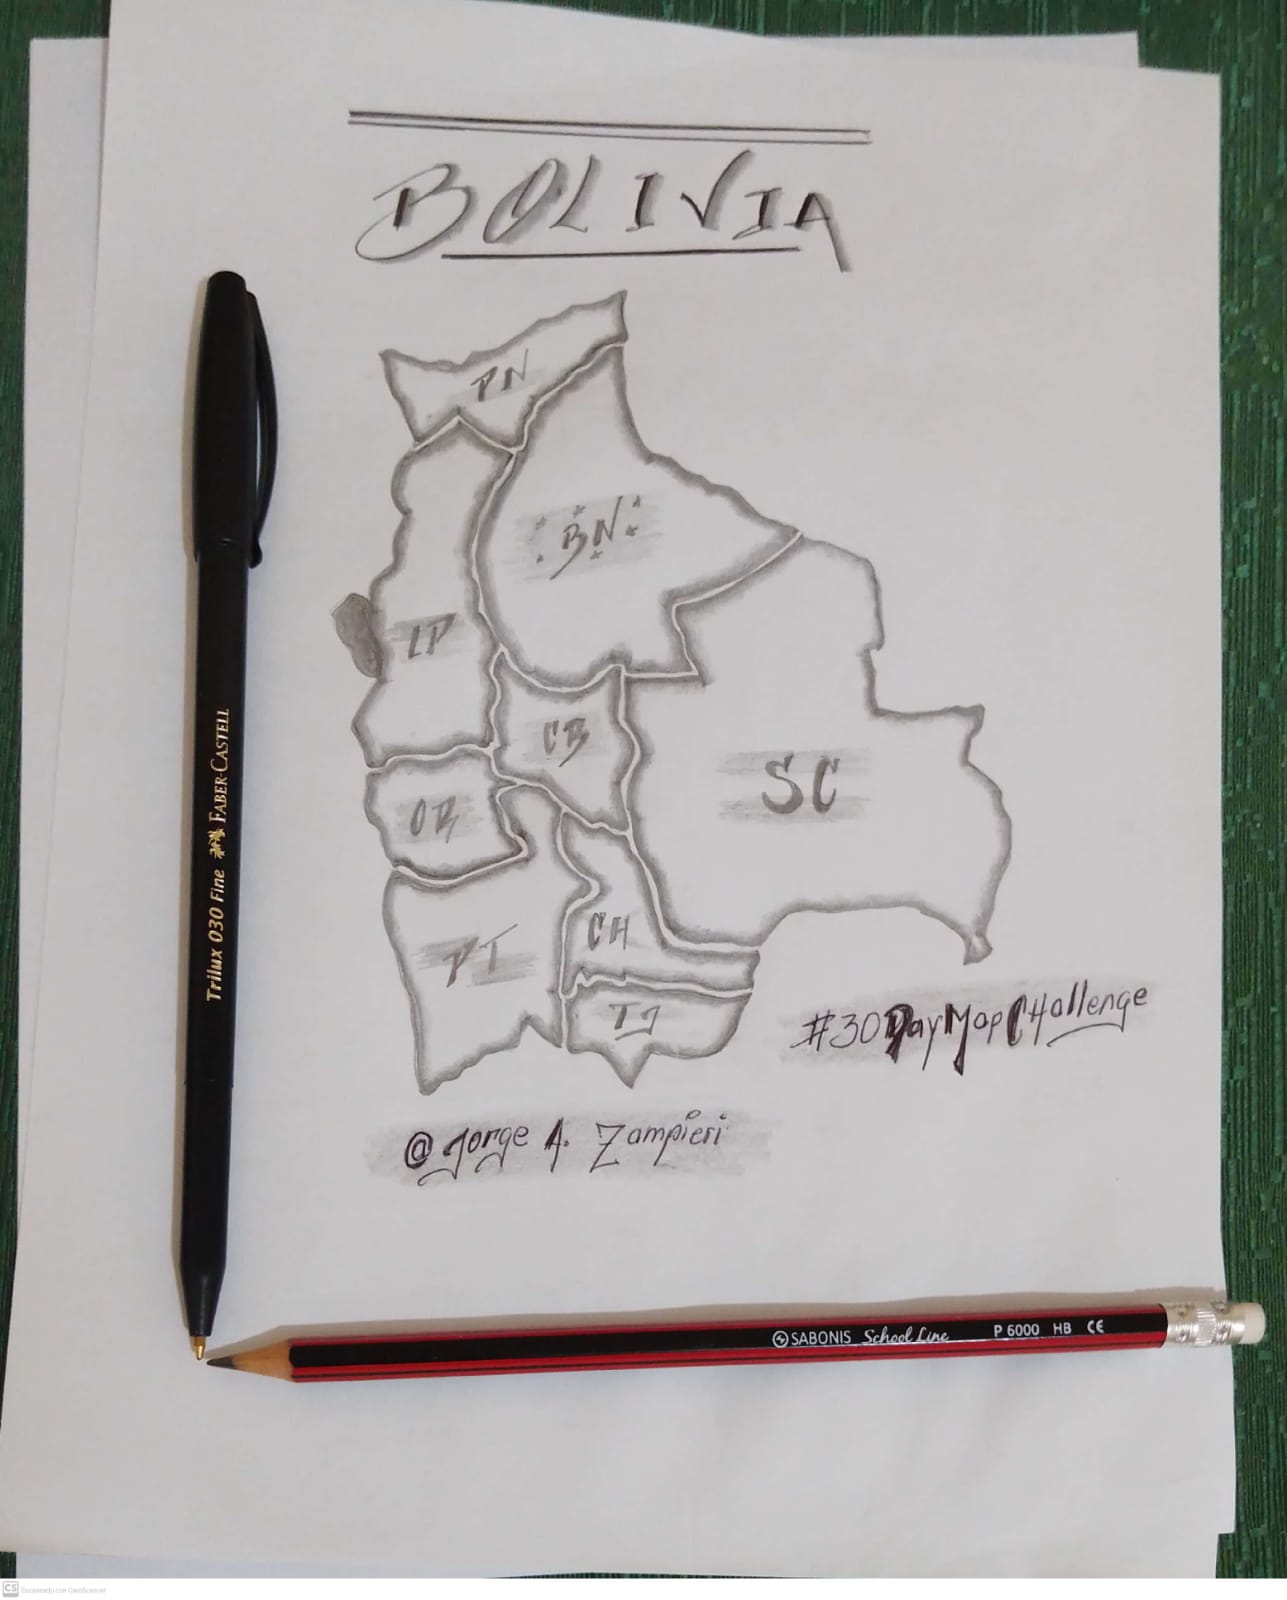 BOLIVIA
PN
BN
LP
CB
SC
OR
CH
PT
TJ
#30DayMapCHallenge
@Jorge A. Zampieri
Trilux 030 Fine FABER-CASTELL
SABONIS School Line P 6000 HB CE
CS Escaneado con CamScanner